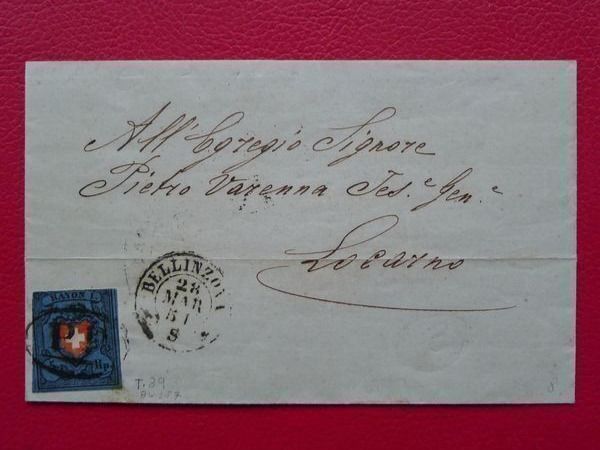 All'Egregio Signore
Pietro Varenna Tes.e Gen.e
Locarno
BELLINZONA
28
MAR
51
S
RAYON I
P.P.
5 Rp.
T. 39
8